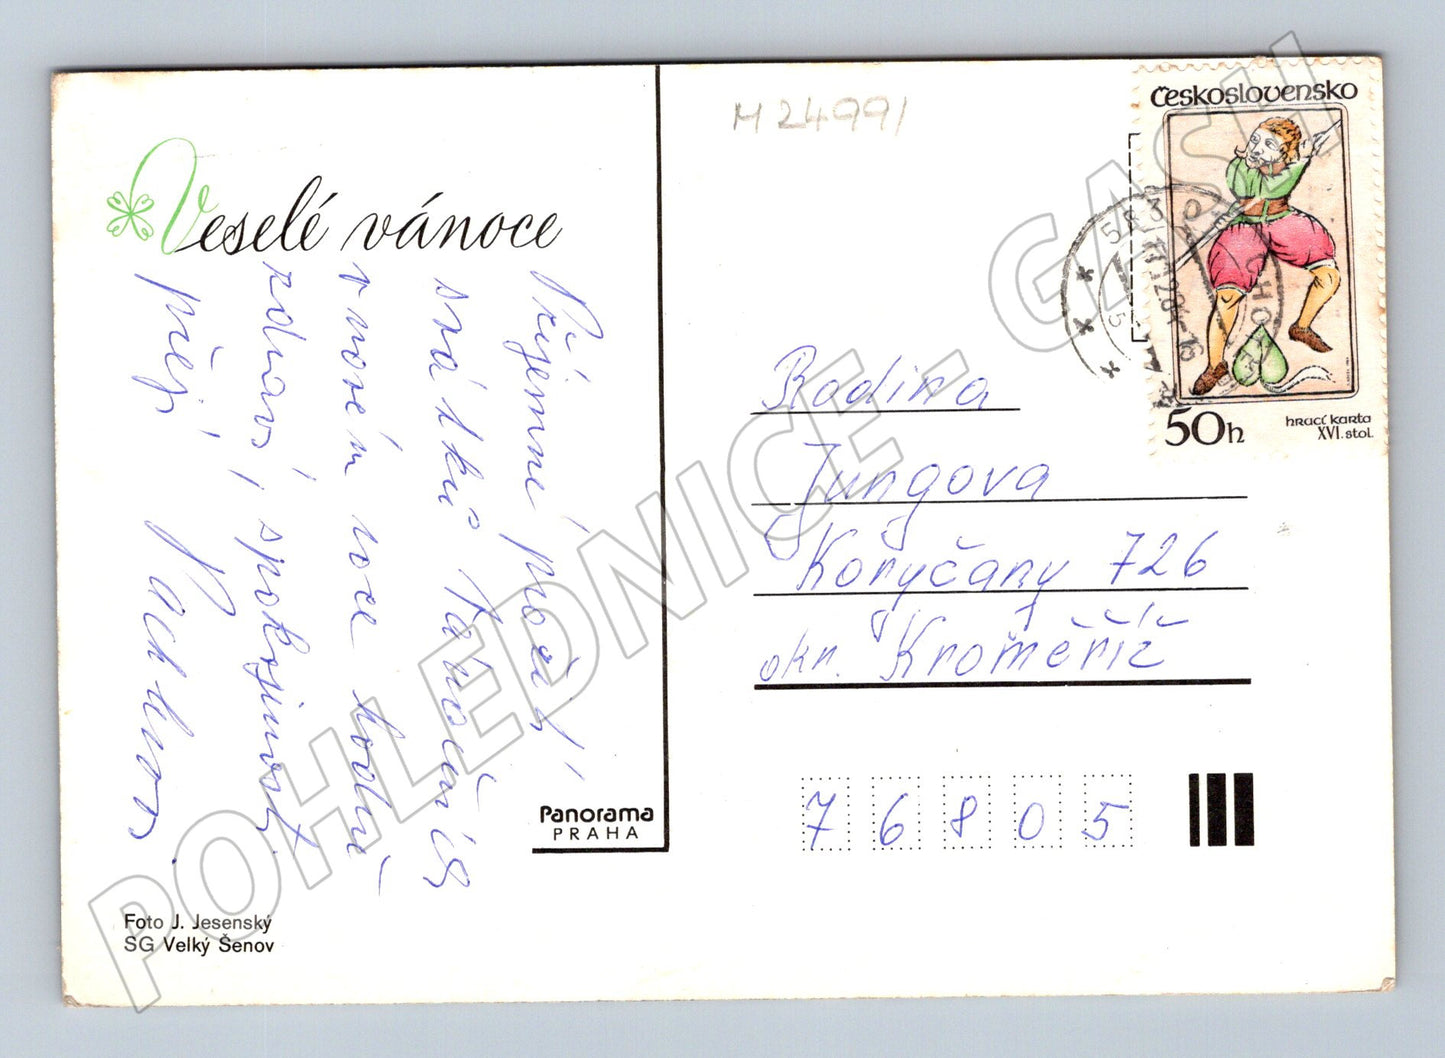 Veselé vánoce
M 24991
Československo
50h
hrací karta
XVI. stol.
Příjemné prožití
svátků vánočních
v novém roce hodně
zdraví, spokojenosti
přejí
Rodina
Jungova
Koryčany 726
okr. Kroměříž
76805
Panorama
PRAHA
Foto J. Jesenský
SG Velký Šenov
POHLEDNICE - GASH